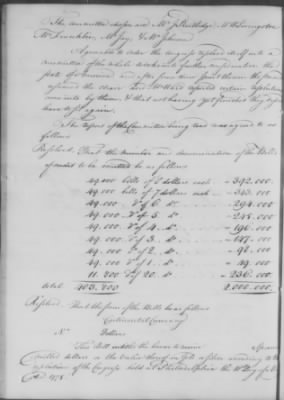 The committee chosen are Mr Rutledge, Mr W. Livingston
Mr Franklin, Mr Jay, & Mr Johnson
Agreeable to order the Congress resolved itself into a
committee of the whole to take into farther consideration the
state of America and after some time spent therein the
resumed the chair and Mr Ward reported certain resolutions
come into by them & that not having yet finished they
leave to sit again.
The report of the committee being read was agreed to as
follows
Resolved That the number and denomination of the Bills
of credit to be emitted be as follows
49.000 bills of 8 dollars each - 392.000
49.000 bills of 7 dollars each - 343.000
49.000 Do of 6 Do - 294.000
49.000 Do of 5 Do - 245.000
49.000 Do of 4 Do - 196.000
49.000 Do of 3 Do - 147.000
49.000 Do of 2 Do - 98.000
49.000 Do of 1 Do - 49.000
11.800 Do of 20 Do - 236.000
total 403.800 2.000.000
Resolved That the form of the Bills be as follows
Continental Currency
No Dollars
This Bill entitles the bearer to receive
milled dollars or the value thereof in gold or silver according to the
resolutions of the Congress held at Philadelphia the 10th day of
1775.